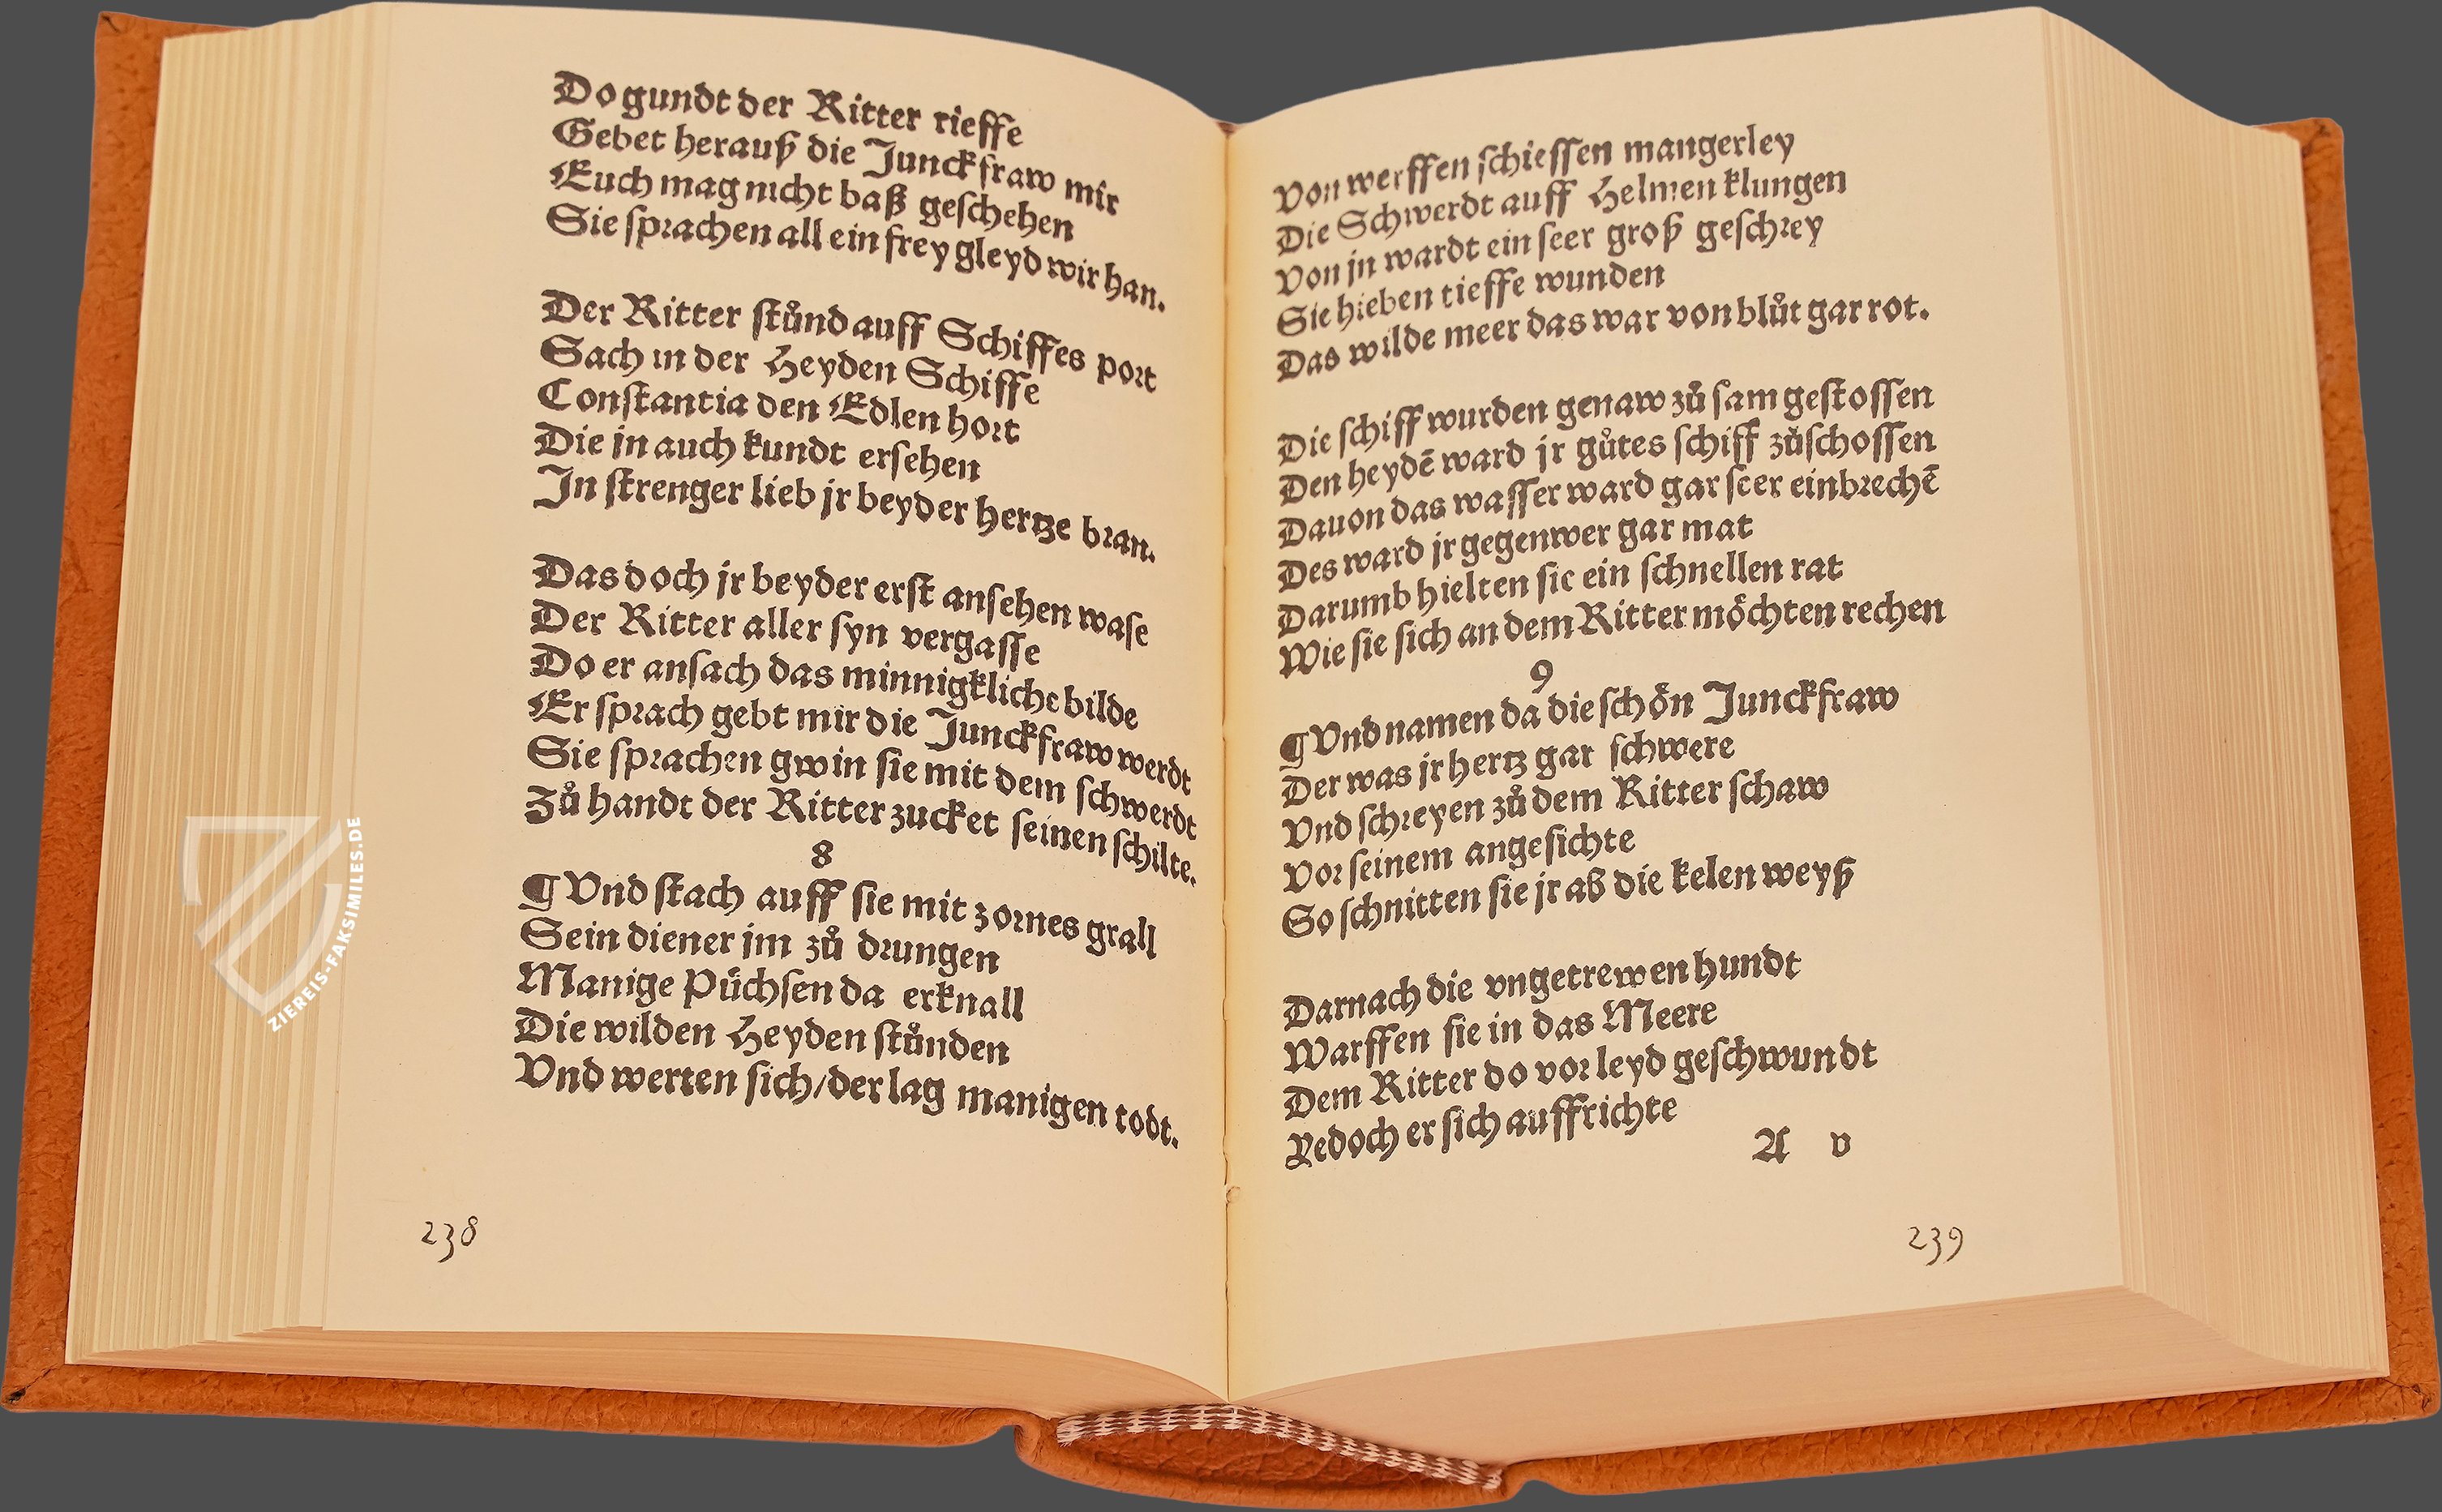 Do gundt der Ritter rieffe
Gebet herauß die Junckfraw mir
Euch mag nicht baß geschehen
Sie sprachen all ein frey gleyd wir han.
Der Ritter stůnd auff Schiffes port
Sach in der Heyden Schiffe
Constantia den Edlen hort
Die in auch kundt ersehen
In strenger lieb jr beyder hertze bran.
Das doch jr beyder erst ansehen wase
Der Ritter aller syn vergasse
Do er ansach das minnigkliche bilde
Er sprach gebt mir die Junckfraw werdt
Sie sprachen gwin sie mit dem schwerdt
Zů handt der Ritter zucket seinen schilte.
8
¶ Vnd stach auff sie mit zornes grall
Sein diener im zů drungen
Manige Püchsen da erknall
Die wilden Heyden stůnden
Vnd werten sich/der lag manigen todt.
238
Von werffen schiessen mangerley
Die Schwerdt auff Helmen klungen
Von jn wardt ein seer groß geschrey
Sie hieben tieffe wunden
Das wilde meer das war von blůt gar rot.
Die schiff wurden genaw zů sam gestossen
Den heydē ward jr gůtes schiff zůschossen
Dauon das wasser ward gar seer einbrechē
Des ward jr gegenwer gar mat
Darumb hielten sie ein schnellen rat
Wie sie sich an dem Ritter möchten rechen
9
¶ Vnd namen da die schön Junckfraw
Der was jr hertz gar schwere
Vnd schreyen zů dem Ritter schaw
Vor seinem angesichte
So schnitten sie jr ab die kelen weyß
Darnach die vngetrewen hundt
Warffen sie in das Meere
Dem Ritter do vor leyd geschwundt
Yedoch er sich auffrichte
A v
239
ZIEREIS-FAKSIMILES.DE